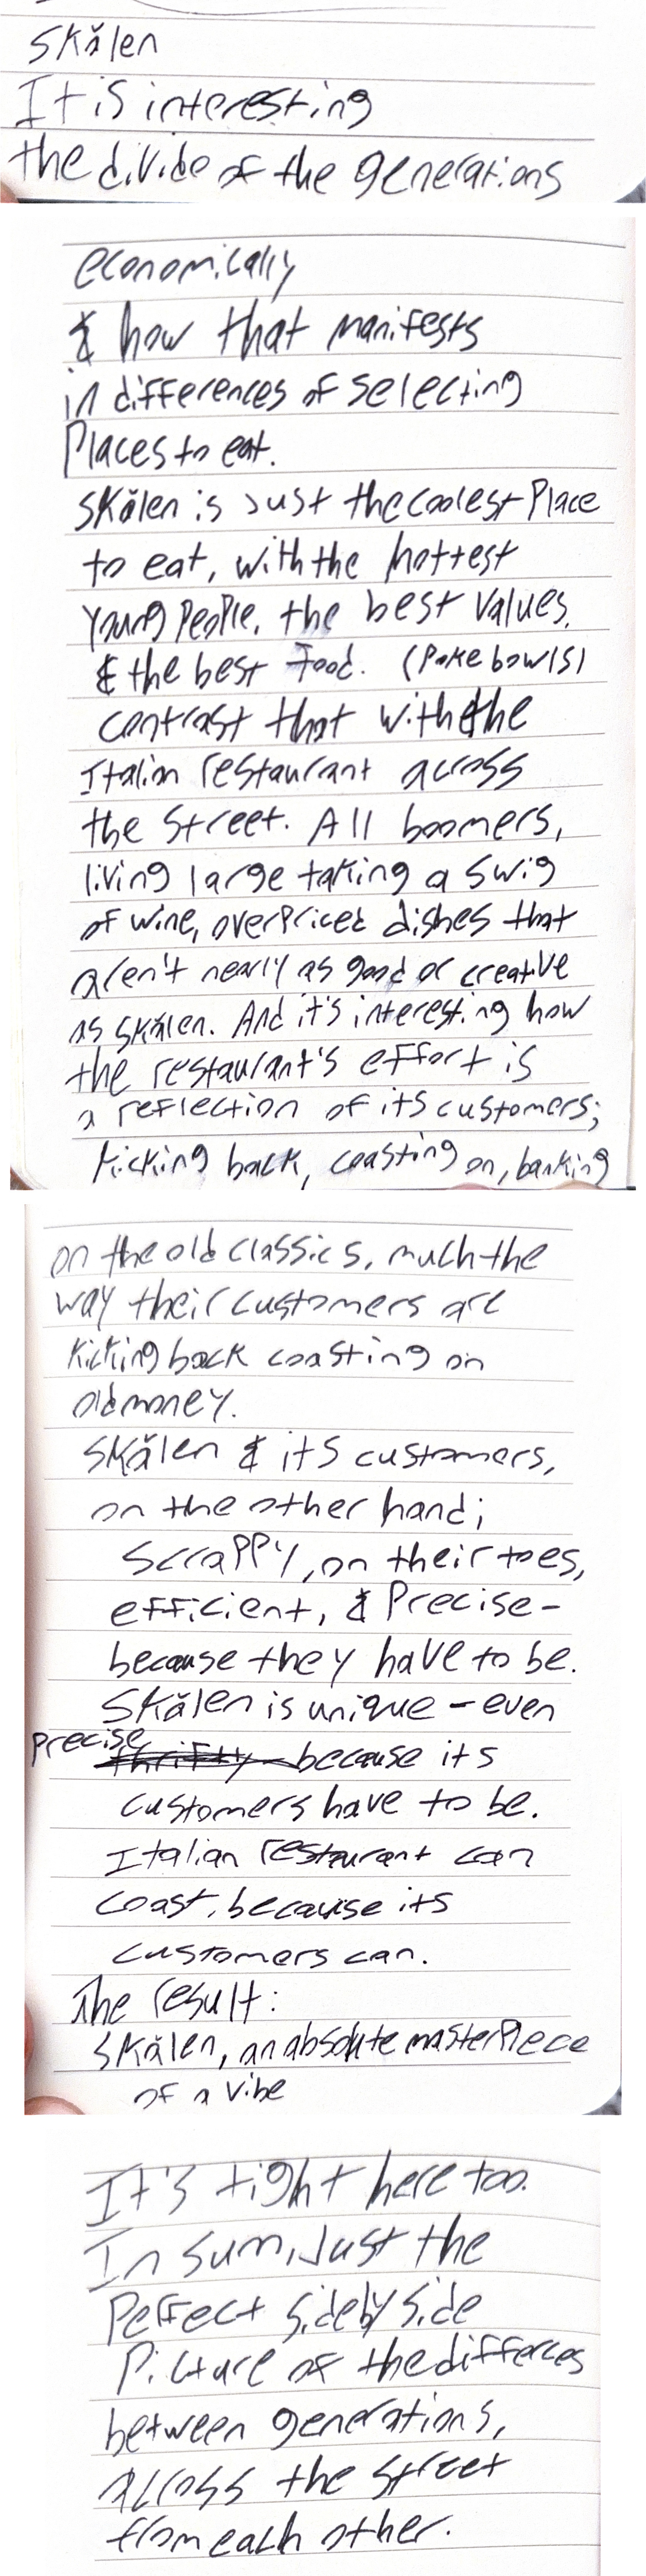 Skălen
It is interesting
the divide of the generations
economically
& how that manifests
in differences of selecting
Places to eat.
Skălen is Just the coolest Place
to eat, with the hottest
young people, the best values,
& the best food. (Poke bowls)
contrast that with the
Italin restaurant across
the street. All boomers,
living large taking a swig
of wine, overpriced dishes that
aren't nearly as good or creative
as skălen. And it's interesting how
the restaurant's effort is
a reflection of its customers;
kicking back, coasting on, banking
on the old classics, much the
way their customers are
kicking back coasting on
old money.
Skălen & its customers,
on the other hand;
Scrappy, on their toes,
efficient, & Precise-
because they have to be.
Skălen is unique - even
precise thrifty because its
customers have to be.
Italian restaurant can
coast, because its
customers can.
The result:
Skălen, an absolute masterpiece
of a vibe
It's tight here too.
In sum, Just the
Perfect side by side
Picture of the differces
between generations,
across the street
from each other.